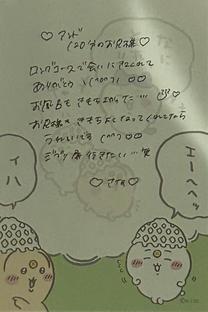 ♡ アンド ♡
120分のお兄様
ロングコースで会いにきてくれて
ありがとう \(^o^)/ ♡♡
お風呂もきもちよかって…
お兄様もきもちよくなってくれてたら
うれしいです (^^) ♡♡
行きたい…笑
♡
エーヘヘッ
イハ